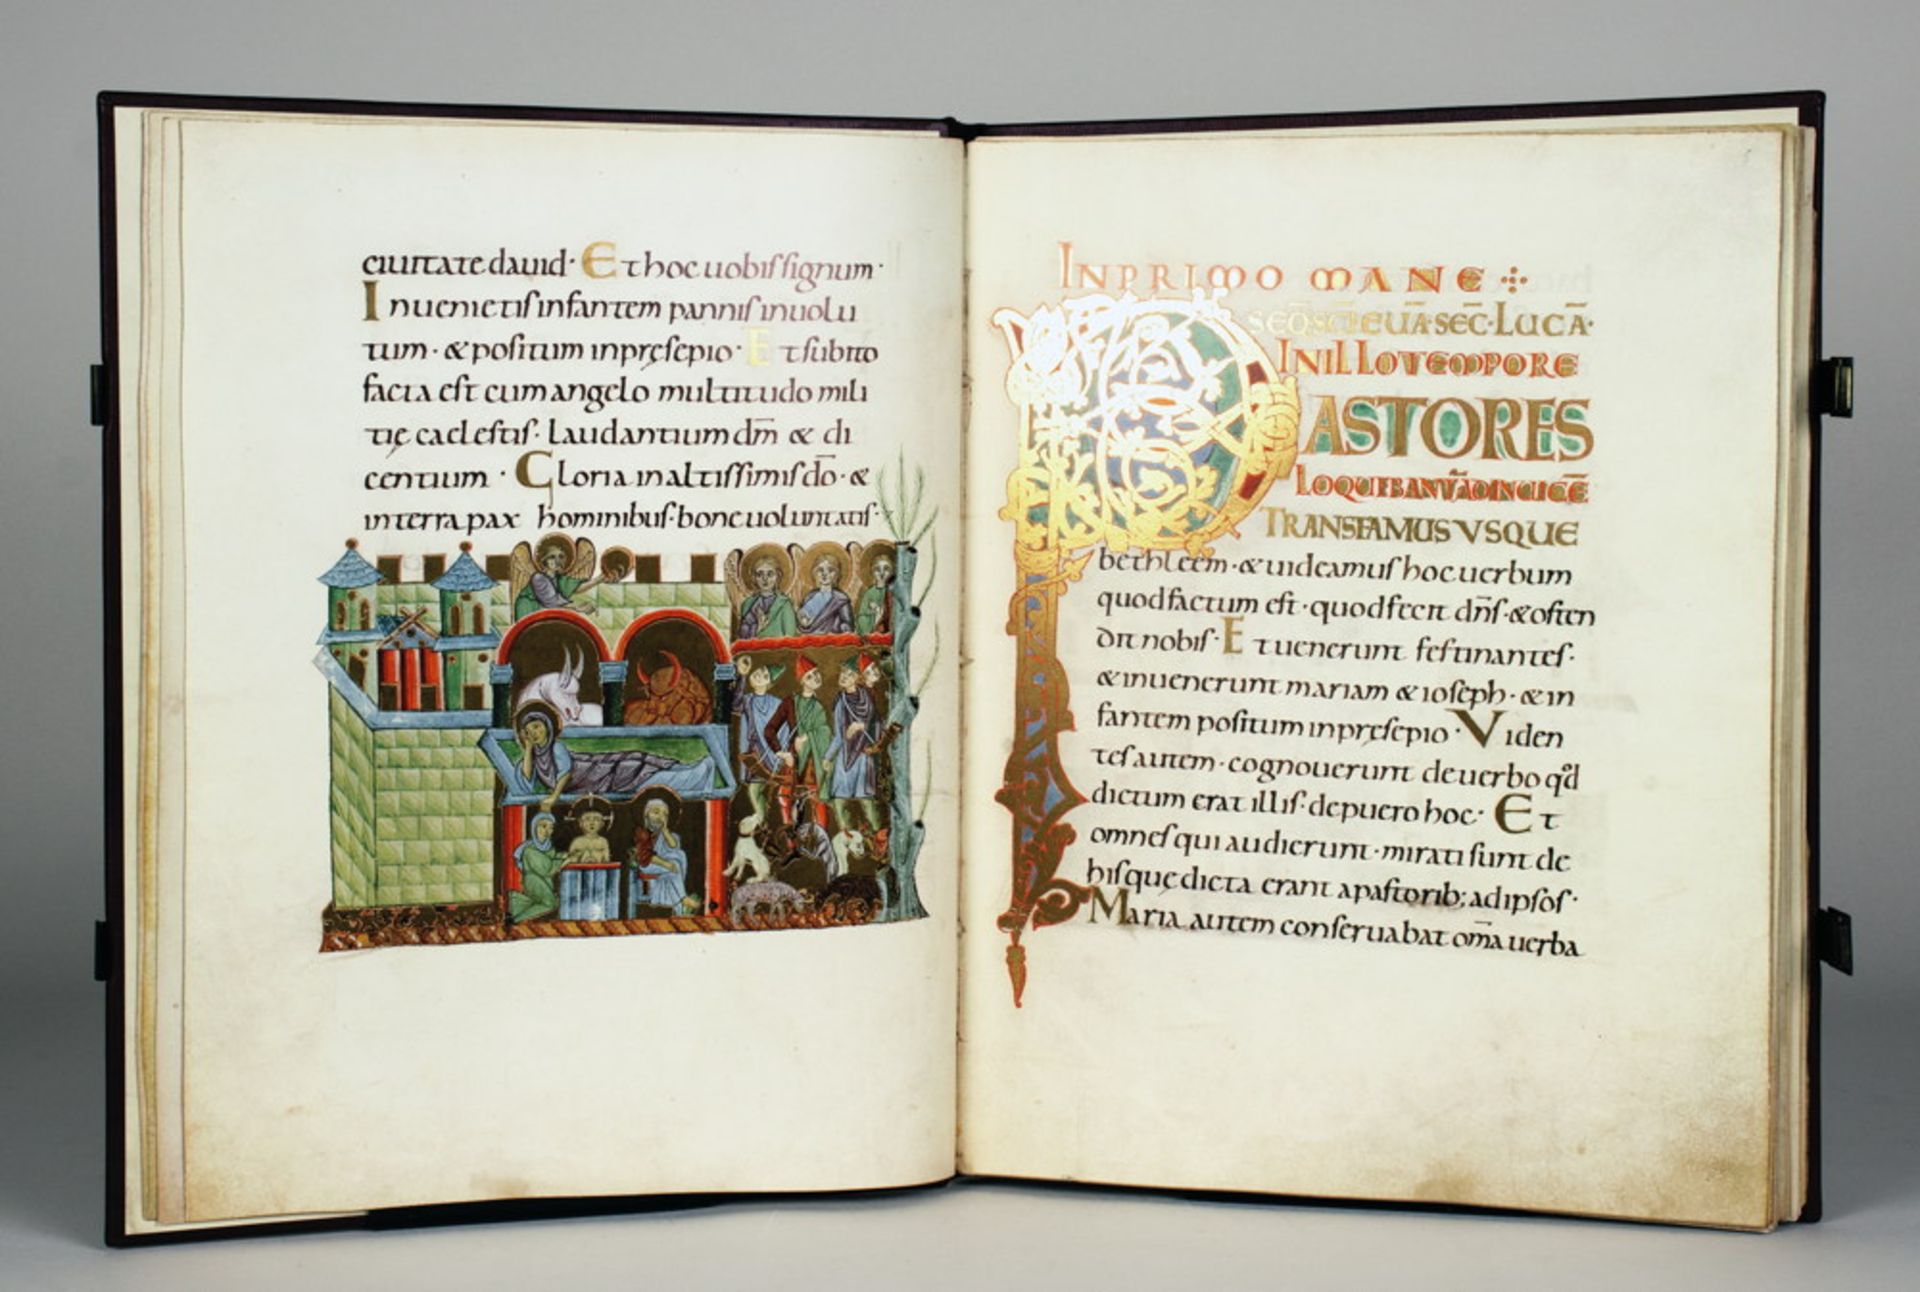 ciuitate dauid· Et hoc uobis signum·
Inuenietis infantem pannis inuolu
tum· & positum in pręsepio· Et subito
facta est cum angelo multitudo mili
tię caelestis· laudantium dm̄ & di
centium· Gloria in altissimis do̅· &
in terra pax hominibus· bonę uoluntatis·
IN PRIMO MANE
SEQ̄ SC̄I EVĀ· SEC̄· LUCĀ·
IN ILLO TEMPORE
PASTORES
LOQUEBANT̄ AD INUICĒ
TRANSEAMUS VSQUE
bethleem· & uideamus hoc uerbum
quod factum est· quod fecit dn̄s· & osten
dit nobis· Et uenerunt festinantes·
& inuenerunt mariam & ioseph· & in
fantem positum in pręsepio· Viden
tes autem· cognouerunt de uerbo qd̄
dictum erat illis· de puero hoc· Et
omnes qui audierunt· mirati sunt de
his quę dicta erant a pastorib; ad ipsos·
Maria autem conseruabat om̄a uerba